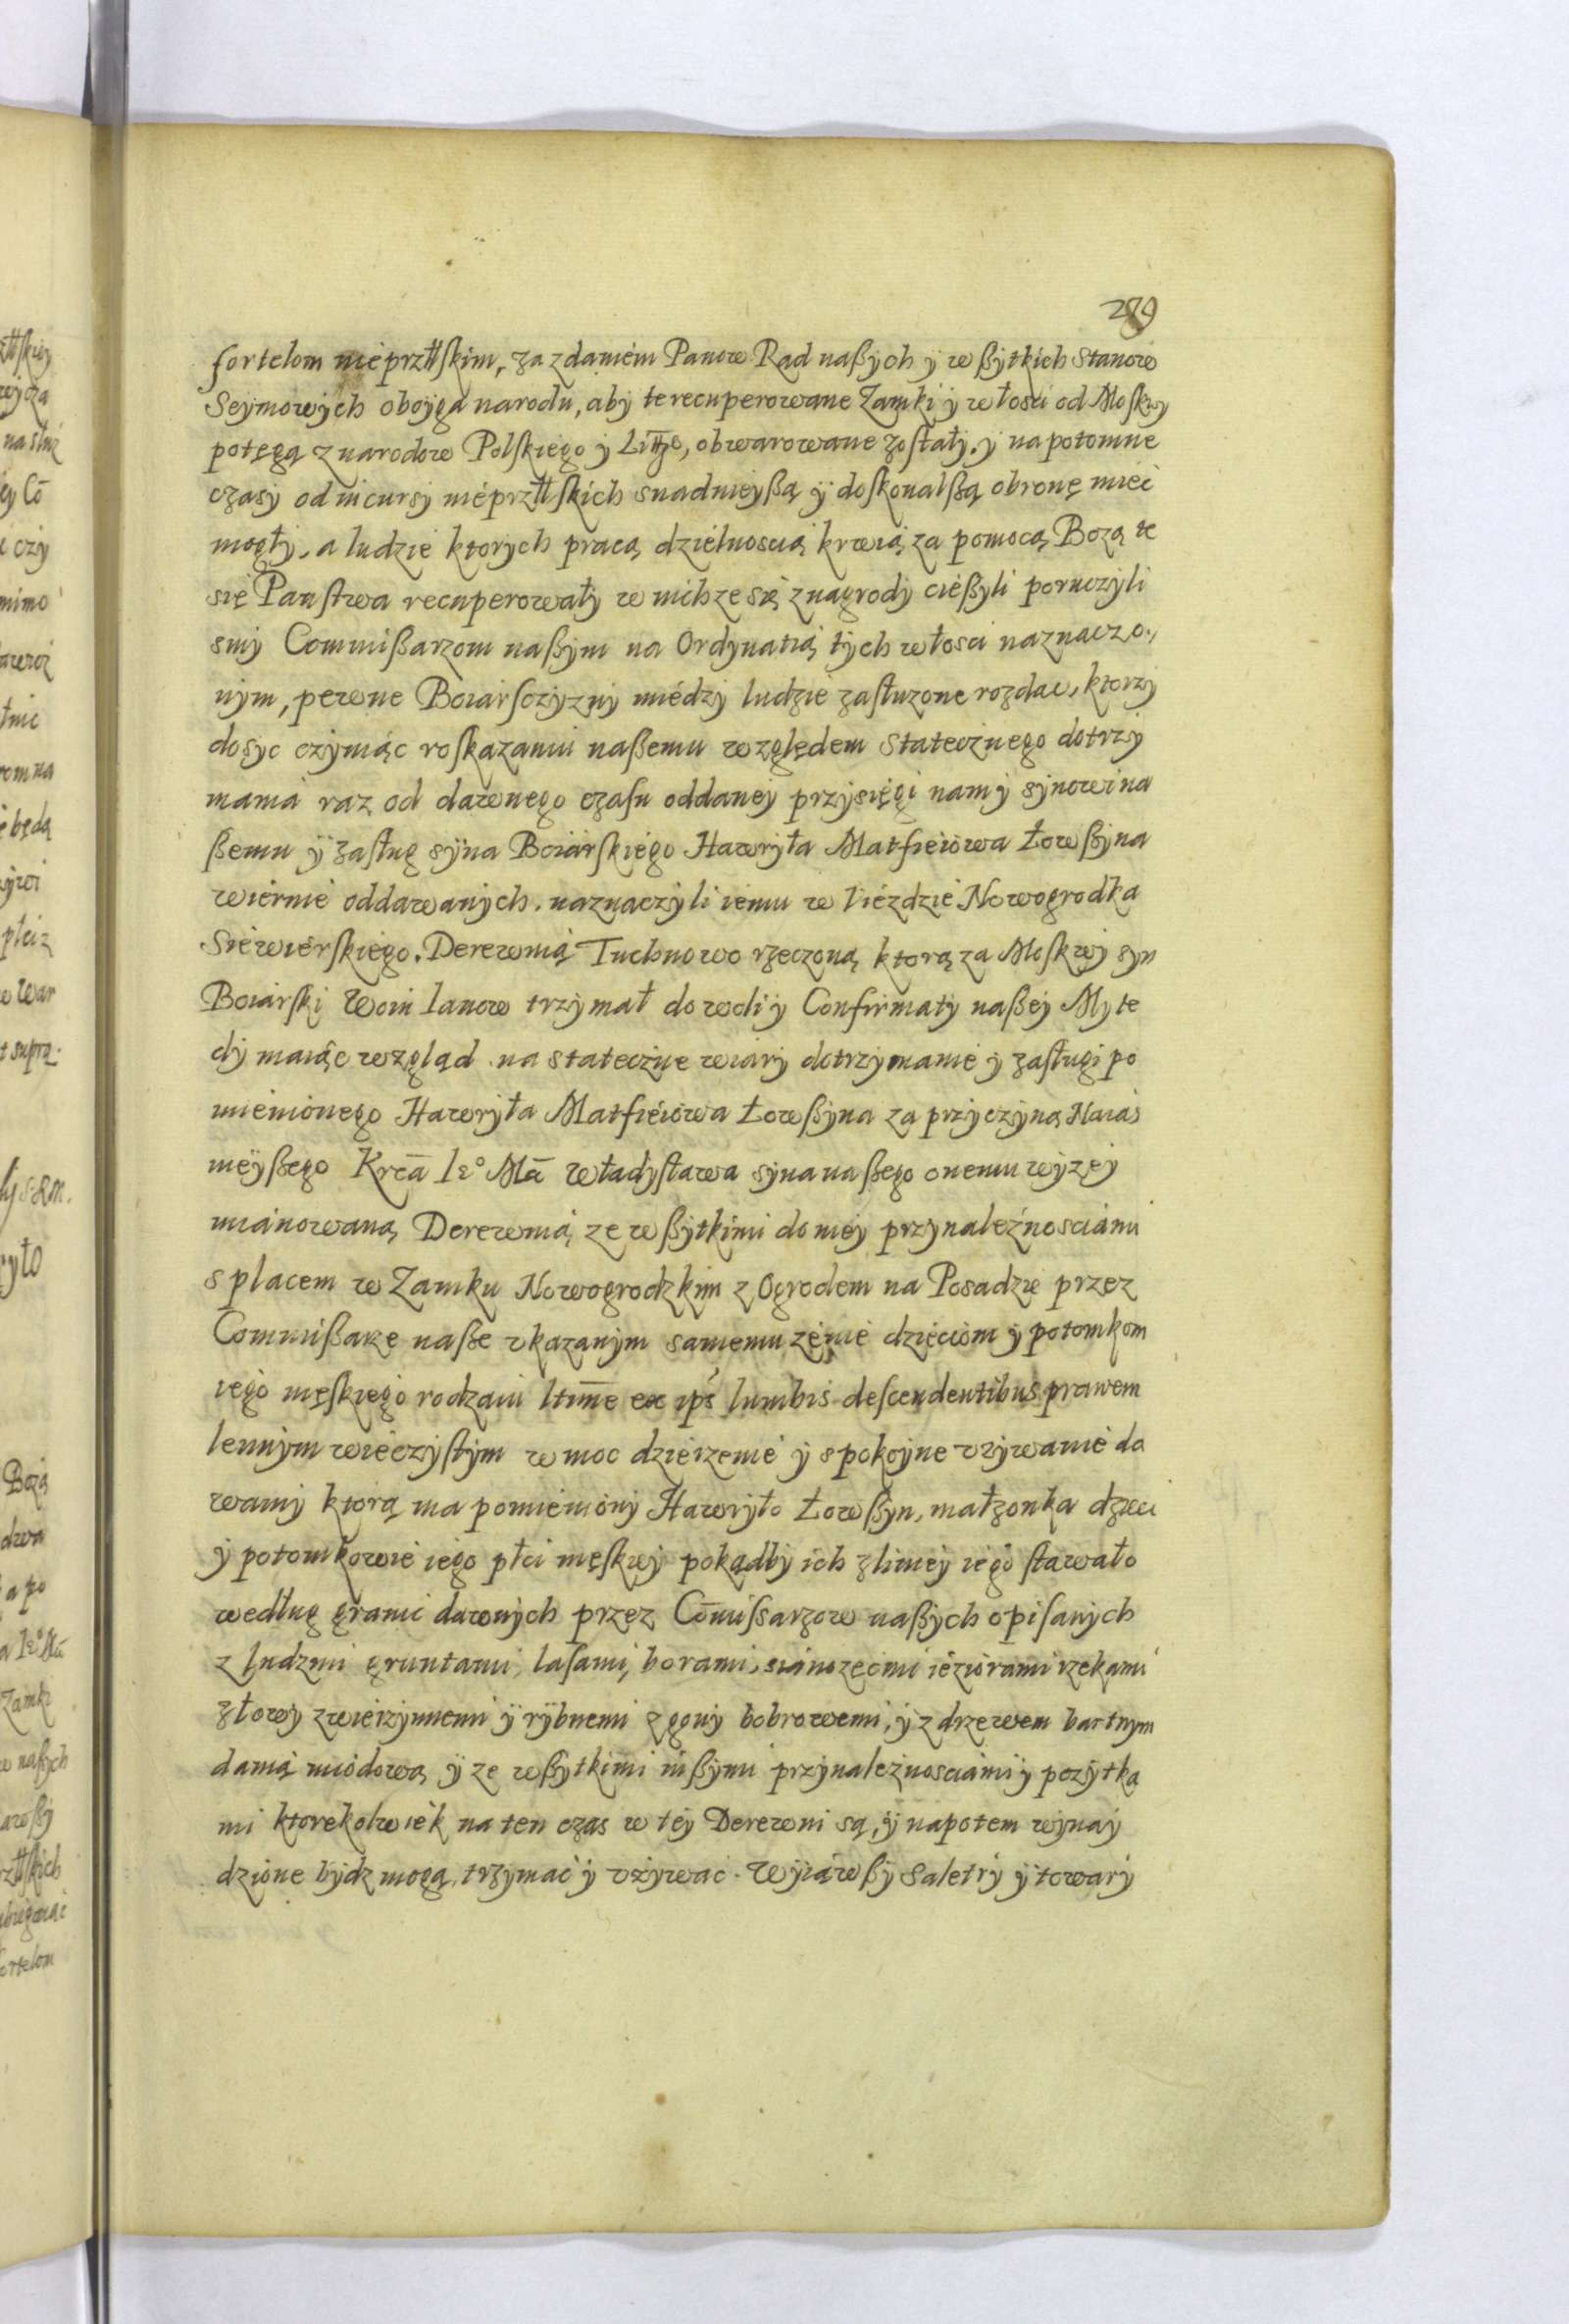 289
fortelom nieprzłłskim, za zdaniem Panow Rad naßych y wßytkich Stanow
Seymowych oboyga narodu, aby te recuperowane Zamki y włosci od Moskwy
potęgą z narodow Polskiego y Litt͠go, obwarowane zostały. y na potomne
czasy od incursy nieprzłłskich snadnieyßą y doskonalßą obronę mieć
mogły. a ludzie ktorych pracą dzielnoscią krwią za pomocą Bozą te
się Panstwa recuperowały w nich ze się z nagrody cießyli poruczyli
smy Commißarzom naßym na Ordynatią tych włosci naznaczo.,
nym, pewne Boiarsczyzny miedzy ludzie zasłuzone rozdac, ktorzy
dosyc czyniąc roskazaniu naßemu względem statecznego dotrzy
mania raz od dawnego czasu oddaney przysięgi nam y synowi na
ßemu y zasług syna Boiarskiego Hawryła Matfieiowa Łowßyna
wiernie oddawanych. naznaczyli iemu w Uiezdzie Nowogrodka
Siewierskiego. Derewnią Tuchnowo rzeczoną ktorą za Moskwy syn
Boiarski Woin Ianow trzymał do woli y Confirmaty naßey My te
dy maiąc wzgląd na stateczne wiary dotrzymanie y zasługi po
mienionego Hawryła Matfieiowa Łowßyna za przyczyną Naias
nieyßego Krcā Ie° Mc̄ Władysława syna naßego onemu wyzey
mianowaną Derewnią ze wßytkimi do niey przynaleźnosciami
s placem w Zamku Nowogrodzkim z Ogrodem na Posadzie przez
Commißarze naße vkazanym samemu zenie dzieciom y potomkom
iego męskiego rodzaiu ltim̄e ex ip̄s lumbis descendentibus prawem
lennym wieczystym w moc dzierzenie y spokoyne vzywanie da
wamy ktorą ma pomieniony Hawryło Łowßyn, małzonka dzieci
y potomkowie iego płci męskiey pokądby ich z liniey iego stawało
według granic dawnych przez Com̄issarzow naßych opisanych
z ludzmi gruntami, lasami, borami, sianozęcmi ieziorami rzekami
z łowy zwierzynnemi y rybnemi z gony bobrowemi, y z drzewem bartnym
danią miodową y ze wßytkimi inßymi przynaleznosciami y pozytka
mi ktorekolwiek na ten czas w tey Derewni są, y napotem wynay
dzione bydz mogą, trzymac y vżywac. Wyiąwßy Saletry y towary